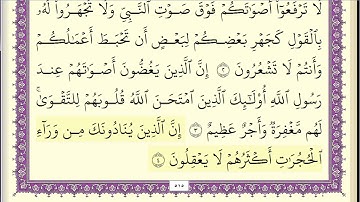 لَا تَرْفَعُوٓا۟ أَصْوَٰتَكُمْ فَوْقَ صَوْتِ ٱلنَّبِىِّ وَلَا تَجْهَرُوا۟ لَهُۥ
بِٱلْقَوْلِ كَجَهْرِ بَعْضِكُمْ لِبَعْضٍ أَن تَحْبَطَ أَعْمَٰلُكُمْ
وَأَنتُمْ لَا تَشْعُرُونَ ٢ إِنَّ ٱلَّذِينَ يَغُضُّونَ أَصْوَٰتَهُمْ عِندَ
رَسُولِ ٱللَّهِ أُو۟لَٰٓئِكَ ٱلَّذِينَ ٱمْتَحَنَ ٱللَّهُ قُلُوبَهُمْ لِلتَّقْوَىٰ ۚ
لَهُم مَّغْفِرَةٌ وَأَجْرٌ عَظِيمٌ ٣ إِنَّ ٱلَّذِينَ يُنَادُونَكَ مِن وَرَآءِ
ٱلْحُجُرَٰتِ أَكْثَرُهُمْ لَا يَعْقِلُونَ ٤
٥١٥